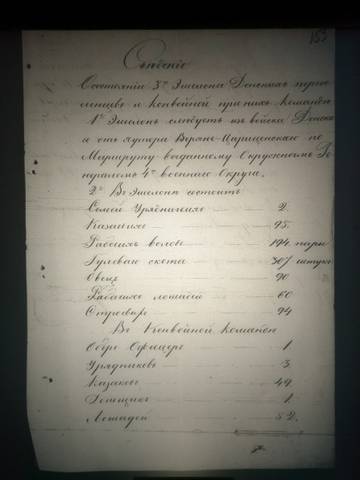 153
Сведение
О состоянии 3го Эшелона Донских пересе
ленцев и конвойной при них команды
1е Эшелон следует из войска Донска
го от хутора Верхне-Цариценскаго по
Маршруту выданному Окружным Ге
нералом 4го военнаго Округа.
2е В Эшелоне состоит
Семей Урядничьих 2.
Казачьих 95.
Рабочих волов 194 пары
Гулеваго скота 307 штук
Овец 90
Рабочих лошадей 60
Строевых 94
В Конвойной Команде
Обер Офицер 1.
Урядников 3
Казаков 49
1.
Лошадей 52.